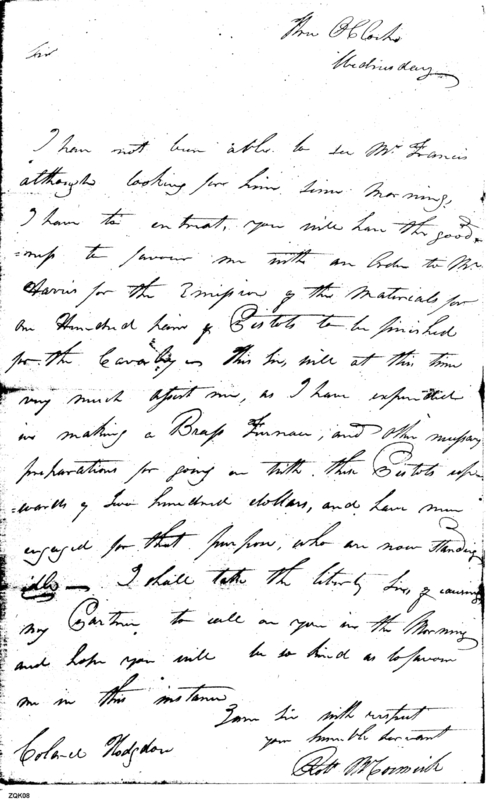 Three O Clock
Wednesday
Sir
I have not been able to see Mr Francis
although looking for him since Morning,
I have to entreat, you will have the good-
=ness to favour me with an Order to Mr
Harris for the Emission of the Materials for
an Hundred pair of Pistols to be finished
for the Cavalry as this Sir, will at this time
very much assist me, as I have expended
in making a Brass Furnace, and other necessary
preparations for going on with these Pistols upp
=wards of Two hundred dollars, and have men
engaged for that purpose, who are now Standing
idle — I shall take the liberty Sir of causing
my Partner to call on you in the Morning
and hope you will be so kind as to favour
me in this instance
I am Sir with respect
your humble Servant
Robt McCormick
Colonel Hodgdon
ZQK08